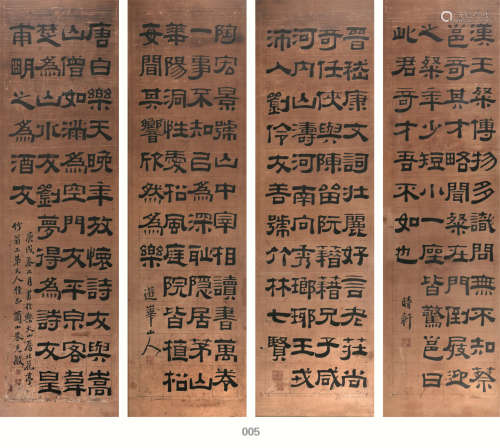 漢王粲傳物多聞無不知蔡
邕奇其才略聞粲在門倒屣迎
之粲年少短小一座皆驚邕曰
此君奇才吾不如也
時軒
晉嵇康文詞壯麗好言老莊尚
奇任俠與陳留阮籍籍兄子咸
河內山濤河南向秀瑯琊王戎
沛人劉伶友善號竹林七賢
陶宏景號山中宰相讀書萬卷
一事不知己為深恥隱居茅山
華陽洞性愛松風庭院皆植松
每聞其響欣然為樂
遊華山人
唐白樂天晚年放懷詩友與嵩
山僧如滿為空門友平泉客韋
楚為山水友劉夢得為詩友皇
甫明之為酒友
庚戌春二月書
大人雅正
005